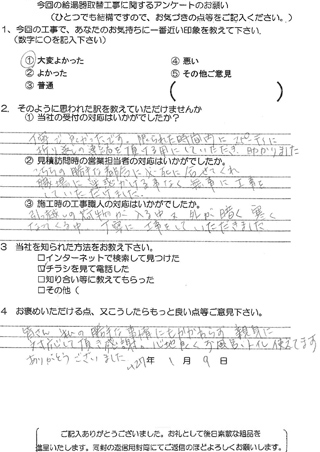 今回の給湯器取替工事に関するアンケートのお願い
(ひとつでも結構ですので、お気づきの点等をご記入ください。)
1、今回の工事で、あなたのお気持ちに一番近い印象を教えて下さい.
(数字に〇を記入下さい)
① 大変よかった
④ 悪い
② よかった
⑤ その他ご意見
③ 普通
2. そのように思われた訳を教えていただけませんか
① 当社の受付の対応はいかがでしたか?
丁寧で良かったです。限られた時間内にスピーディに
折り返しの連絡を頂ける用にしていただき 助かりました
② 見積訪問時の営業担当者の対応はいかがでしたか。
こちらの勝手な都合に
職場に迷惑かける事なく 無事に工事を
していただけました.
③ 施工時の工事職人の対応はいかがでしたか?
引越しの荷物が入る中 外が暗く寒く
なっていく中 丁寧に工事をしていただきました
3 当社を知られた方法をお教え下さい。
□インターネットで検索して見つけた
☑チラシを見て電話した
□知り合い等に教えてもらった
□その他(
4 お褒めいただける点、又こうしたらもっと良い点等ご意見下さい。
皆さん 私の勝手な事情にもかかわらず 親身に
対応して頂き感謝。心地良くお風呂、トイレ使えてます
ありがとうございました
H27年 1月 9日
ご記入ありがとうございました。お礼として後日素敵な粗品を
進呈いたします。同封の返信用封筒にてご返信のほどよろしくお願いします。